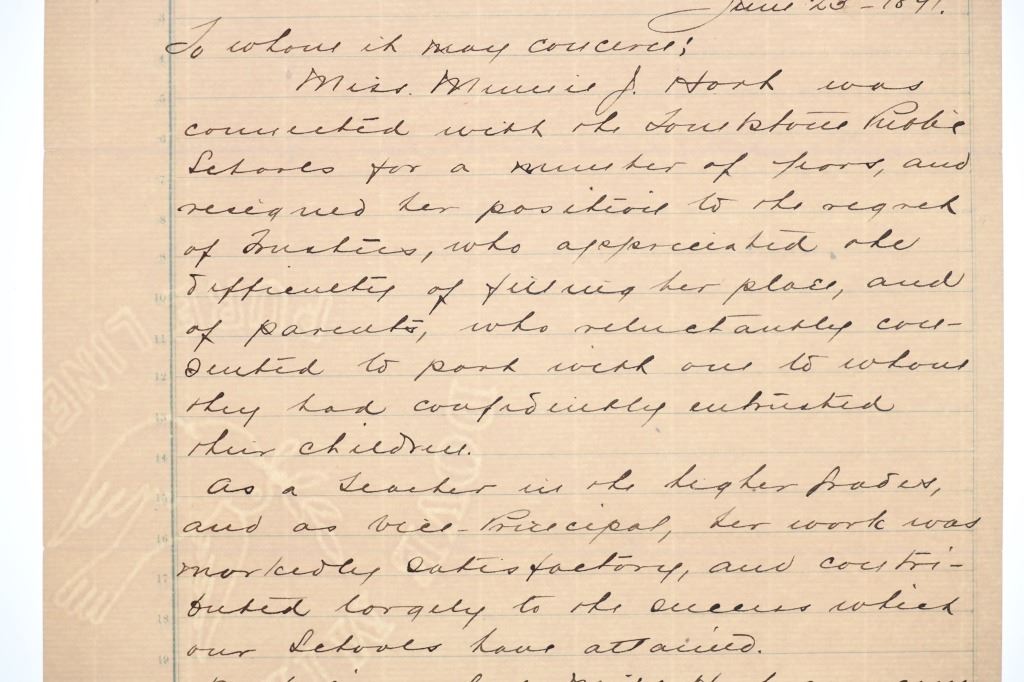 June 23 - 1891.
To whom it may concern:
Miss. Minnie J. Hart was
connected with the Tombstone Public
Schools for a number of years, and
resigned her position to the regret
of Trustees, who appreciated the
difficulty of filling her place, and
of parents, who reluctantly con-
sented to part with one to whom
they had confidently entrusted
their children.
As a Teacher in the higher grades,
and as Vice-Principal, her work was
markedly satisfactory, and contri-
buted largely to the success which
our Schools have attained.